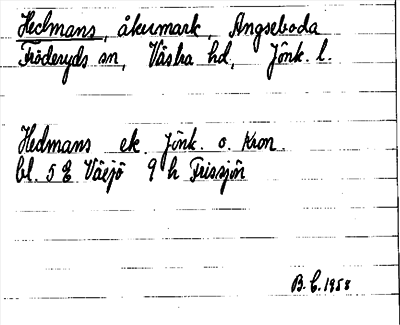 Hedmans, åkermark, Angseboda
Fröderyds sn, Västra hd, Jönk. l.
Hedmans ek. Jönk. o. Kron.
bl. 5 E Växjö 9 h Frissjön
B. E. 1958